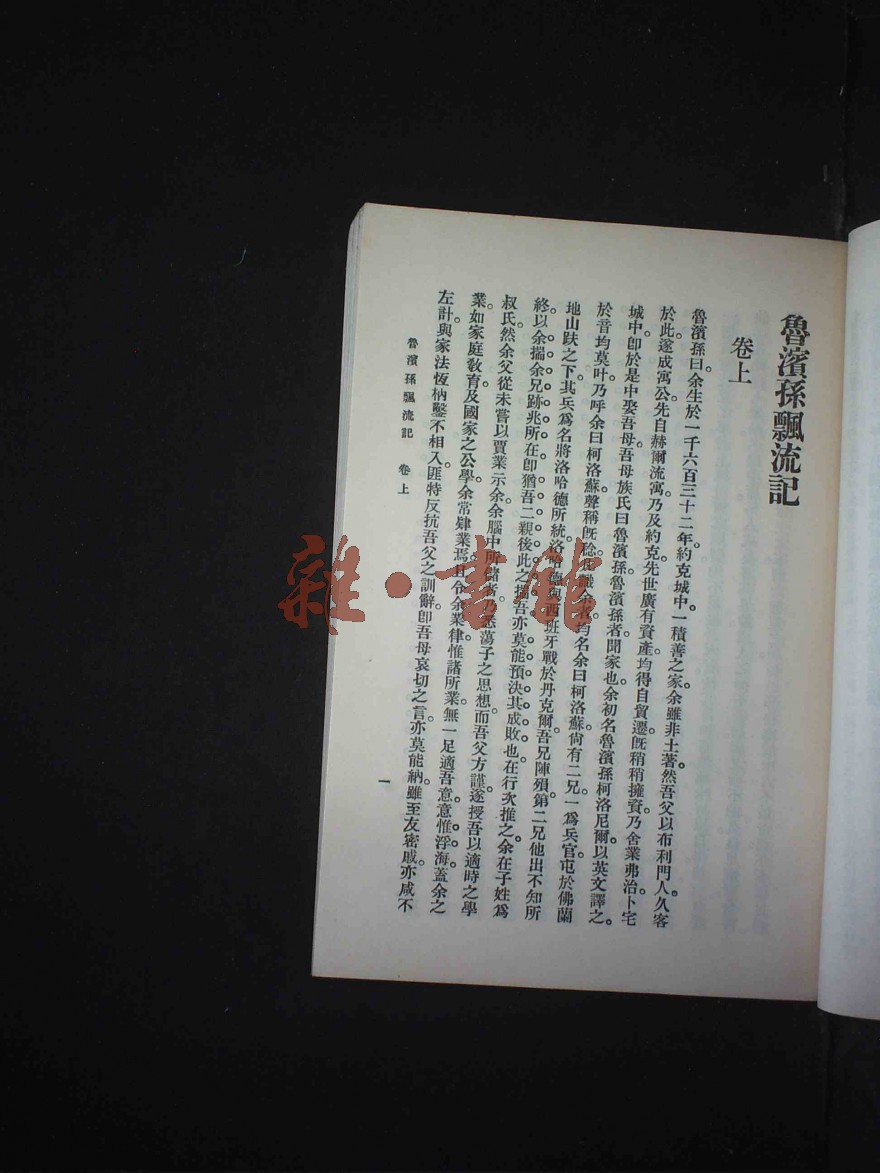 魯濱孫飄流記
卷上
魯濱孫曰。余生於一千六百三十二年約克城中一積善之家余雖非土著然吾父以布利門人久客
於此遂成寓公先自赫爾流寓乃及約克先世廣有資產均得自貿遷既稍稍擁資乃舍業弗治卜宅
城中卽於是中娶吾母吾母族氏曰魯濱孫魯濱孫者聞家也余初名魯濱孫柯洛尼爾以英文譯之。
於音均莫叶乃呼余曰柯洛蘇聲稱既稔凡識余者均名余曰柯洛蘇尙有二兄一爲兵官屯於佛蘭
地山趺之下其兵爲名將洛哈德所統洛哈德與西班牙戰於丹克爾吾兄陣殞。第二兄他出不知所
終。以余揣余兄跡兆所在卽猶吾二親後此之揣吾亦莫能預決其成敗也在行次推之余在子姓爲
叔氏然余父從未嘗以賈業示余余腦中所儲者乃悉蕩子之思想而吾父方謹遂授吾以適時之學
業。如家庭敎育及國家之公學余常肄業焉且令余業律惟諸所業無一足適吾意意惟浮海蓋余之
左計與家法恆枘鑿不相入匪特反抗吾父之訓辭卽吾母哀切之言亦莫能納。雖至友密戚亦咸不
魯濱孫飄流記 卷上
一
雜·書館